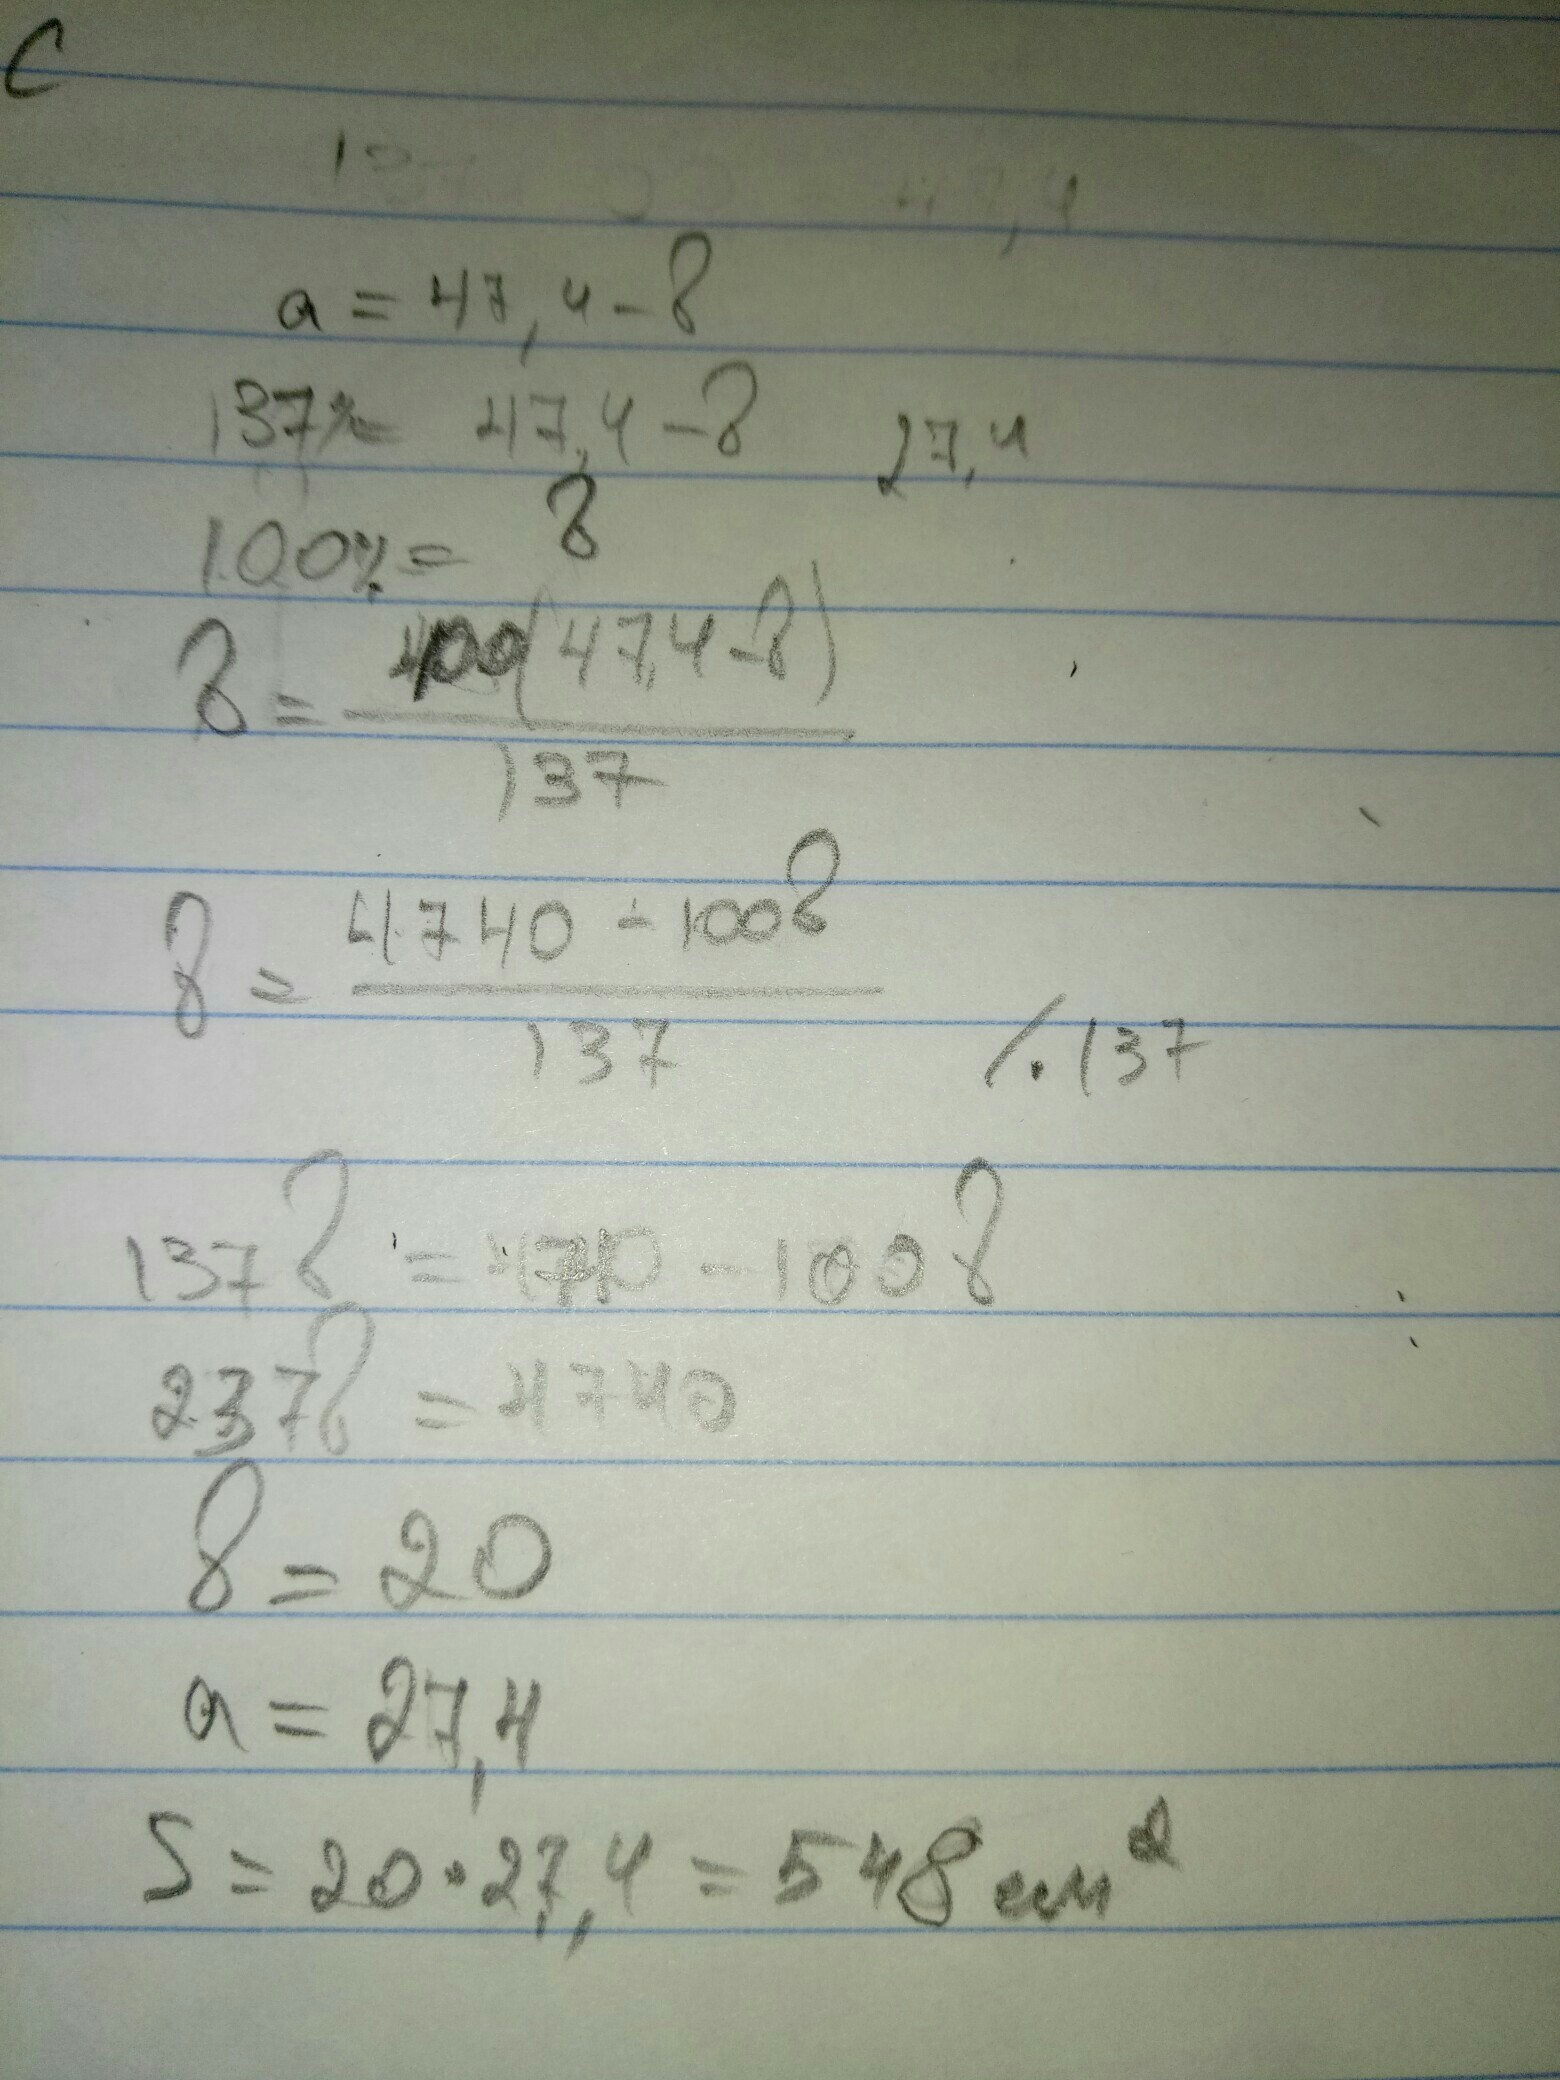 C
a = 47,4 - в
137% = 47,4 - в 27,4
100% = в
в = 100(47,4 - в) / 137
в = 4740 - 100в / 137 /.137
137в = 4740 - 100в
237в = 4740
в = 20
a = 27,4
S = 20 · 27,4 = 548 см²